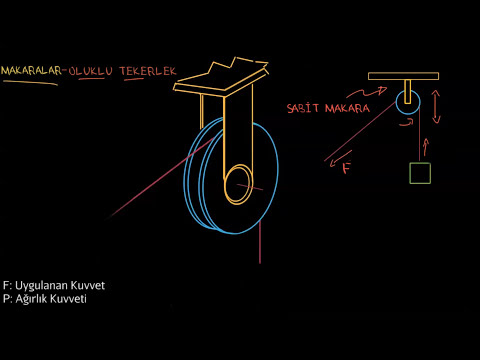 MAKARALAR-OLUKLU TEKERLEK
SABİT MAKARA
F
F: Uygulanan Kuvvet
P: Ağırlık Kuvveti